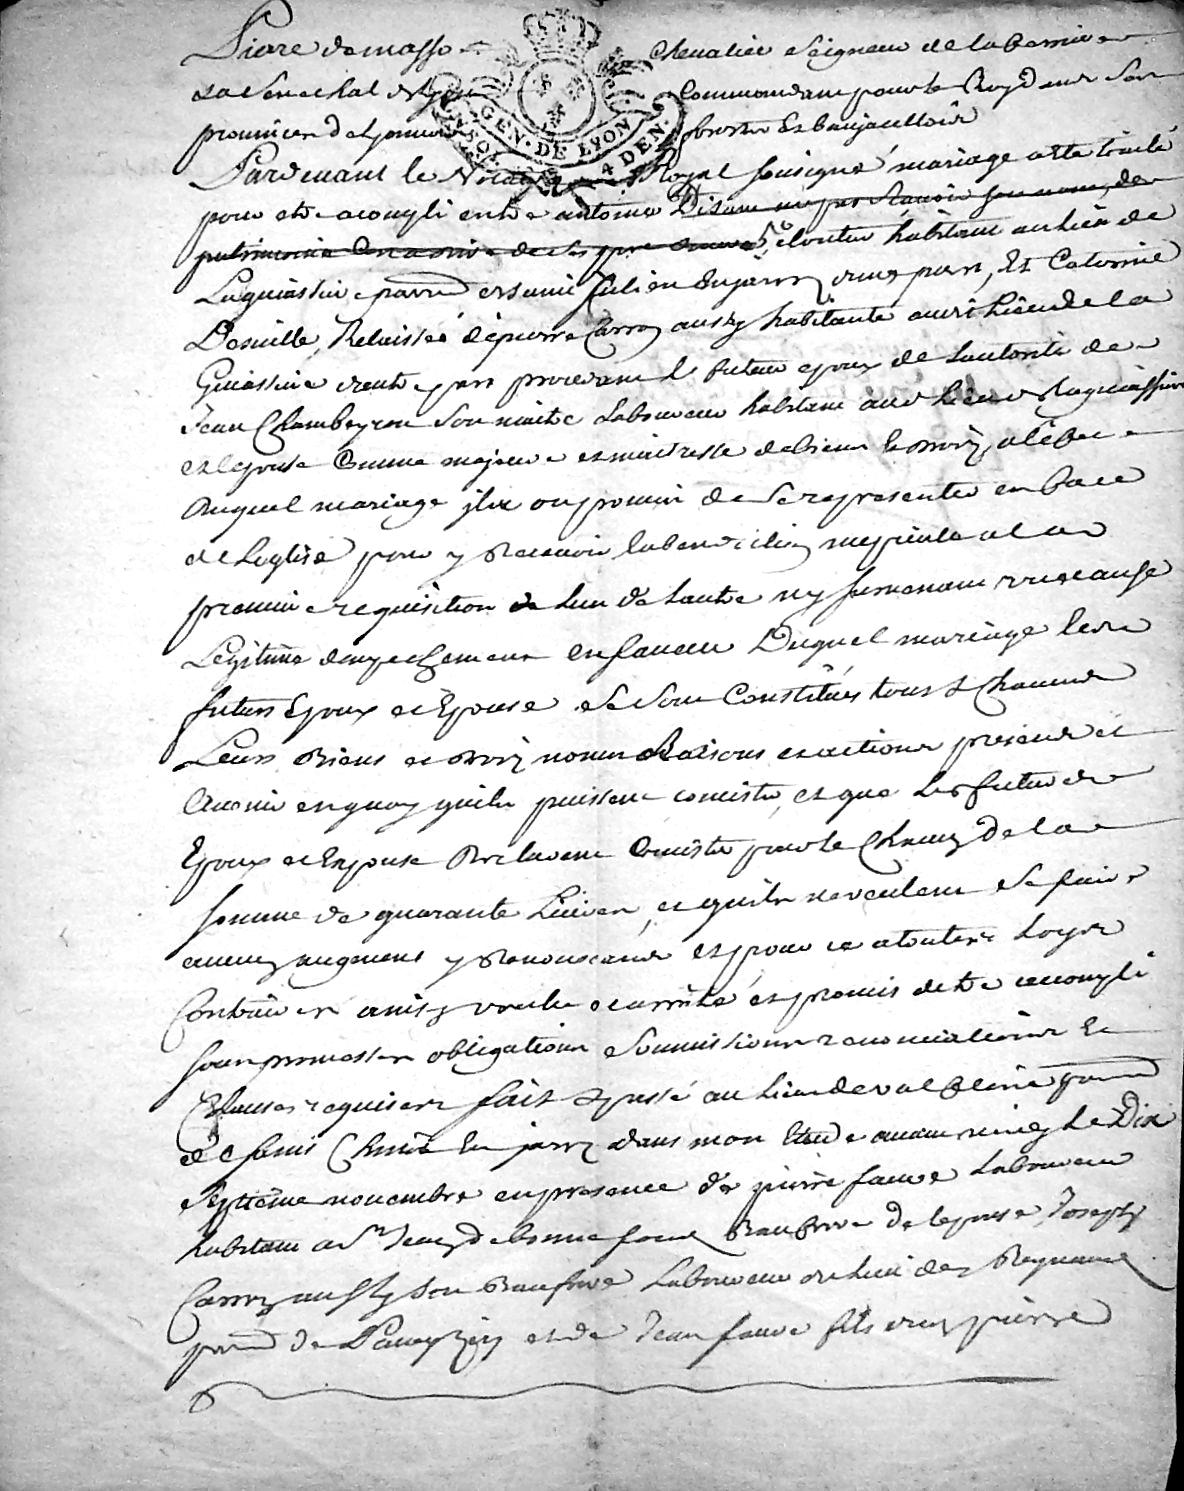 Pierre demasso chevalier Seigneur de la
La Senechal de Lyon Commandant pour le Roy dans Son
GEN. DE LYON
4 DEN.
provinces de Lyonnois forestz Et baujaullois
Pardevant le Notaire Royal Sousigné mariage a ete traité
pour etre acompli entre antoine Disant ne pas Scavoir son nom de
cloutier habitant au lieu de
Laguiassiere parr. de saint Julien en jarrez d'une part, Et Caterine
Deville, Relaissée de pierre Carrez aussy habitante audit Lieu de la
Guiassiere d'autre part procedant le futeur epoux de Lautorité de
Jean Chambeyron Son maitre Laboureur habitant aud. Lieu de Laguiassiere
et lepouse comme majeure et maitresse de biens et droits a leffet
Auquel mariage ils ont promis de Se representer en face
de Leglise pour y Recevoir la benediction nuptiale a la
premiere requisition de lun de lautre ny survenant cause
Legitime dempechement en faveur Duquel mariage les
futurs Epoux et Epouse Se Sont Constitués tous & Chacuns
Leurs Biens et droits noms Raisons et actions presens et
Avenir en quoy quils puissent consister, et que Les futurs
Epoux et Epouse Declarent Consister pour le Chacun de la
somme de quarante Livres, et quils ne veulent Se faire
aucun augment y Renonceant et pour ce a toutes Loyx
Contraires ainsy voulu et arreté et promis detre accompli
sous promesses obligations Soumissions renonciations Et
Clauses requises fait & passé au Lieu de valfleurie parr.
de saint Christo En jarrez dans mon Etude avant midy Le Dix
Septieme novembre en presence de pierre faure Laboureur
habitant a St Jean de bonnefond Beaufrere de lepouse, Joseph
Carrez aussy Son Beaufrere Laboureur du Lieu des Reynaud
parr. de Pavezin et de Jean faure fils dud. pierre